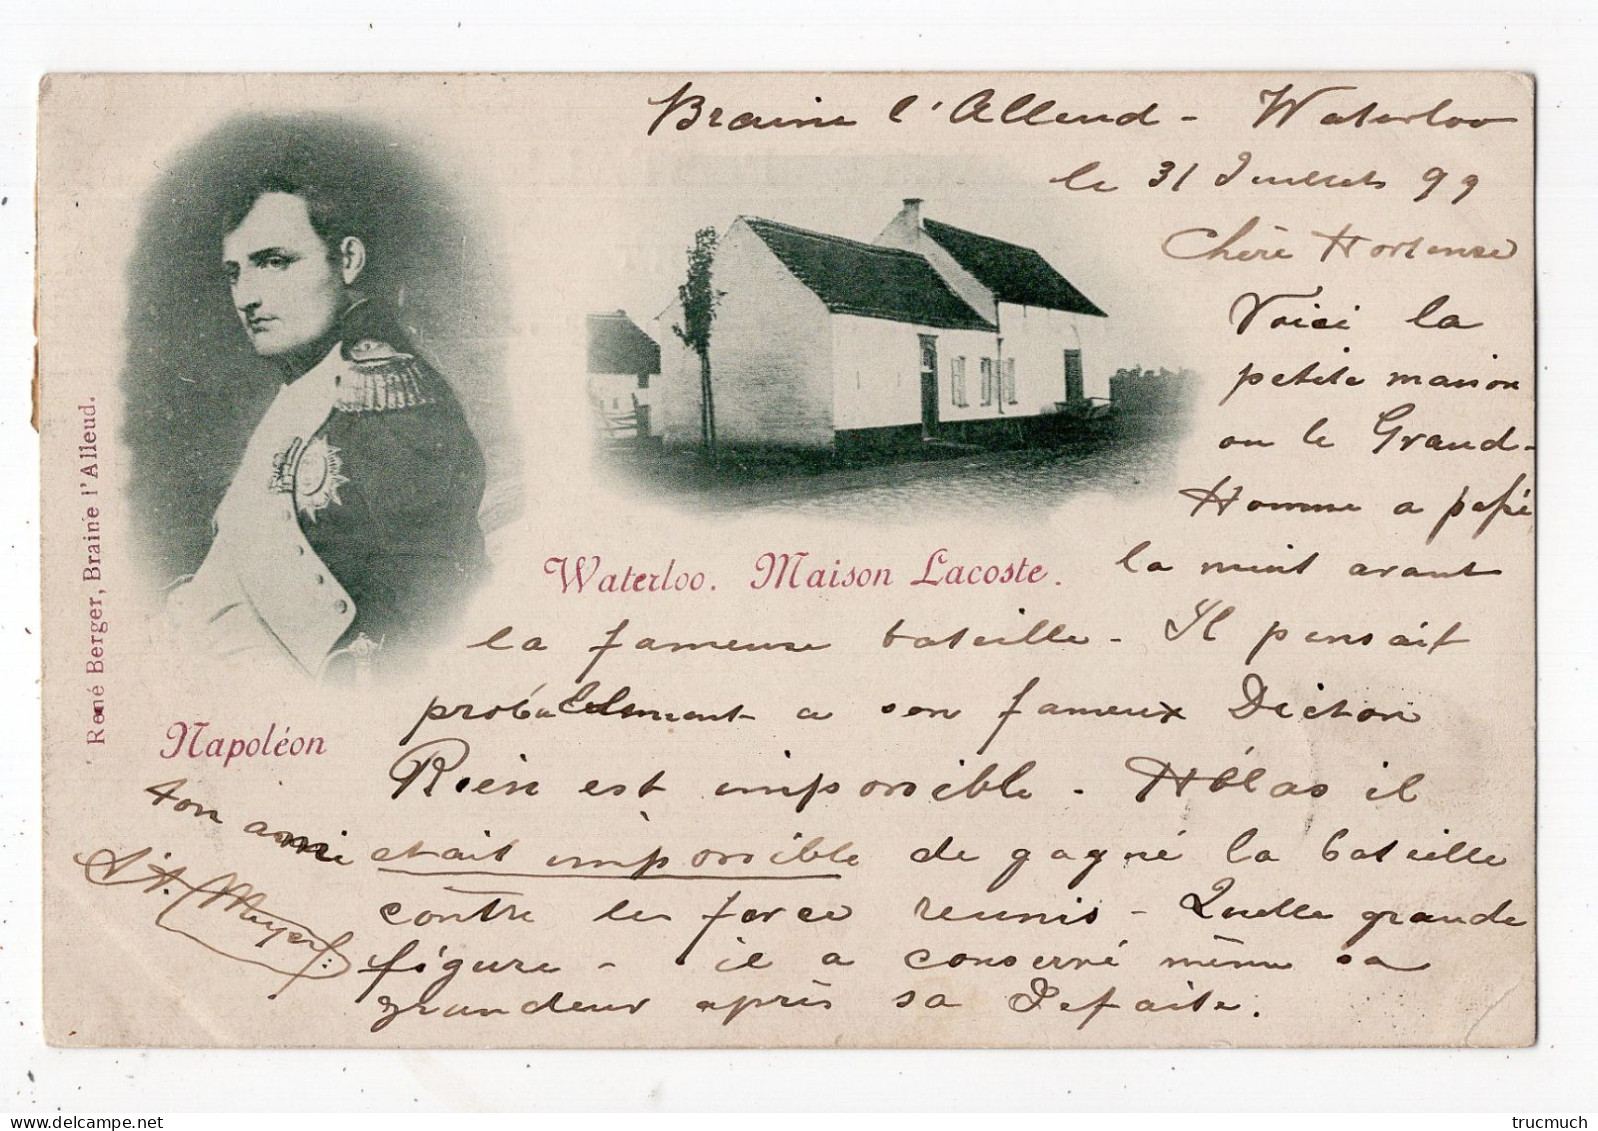 Braine l'Alleud - Waterloo
le 31 Juillet 99
Chère Hortense
Voici la
petite maison
ou le Grand-
Homme a passé
la nuit avant
la fameuse bataille - Il pensait
probablement a son fameux Dicton
Rien est impossible - Hélas il
était impossible de gagné la bataille
contre les force reunis - Quelle grande
figure - il a conservé même sa
grandeur après sa Defaite.
ton ami
Meyer
Waterloo. Maison Lacoste.
Napoléon
René Berger, Braine l'Alleud.
trucmuch